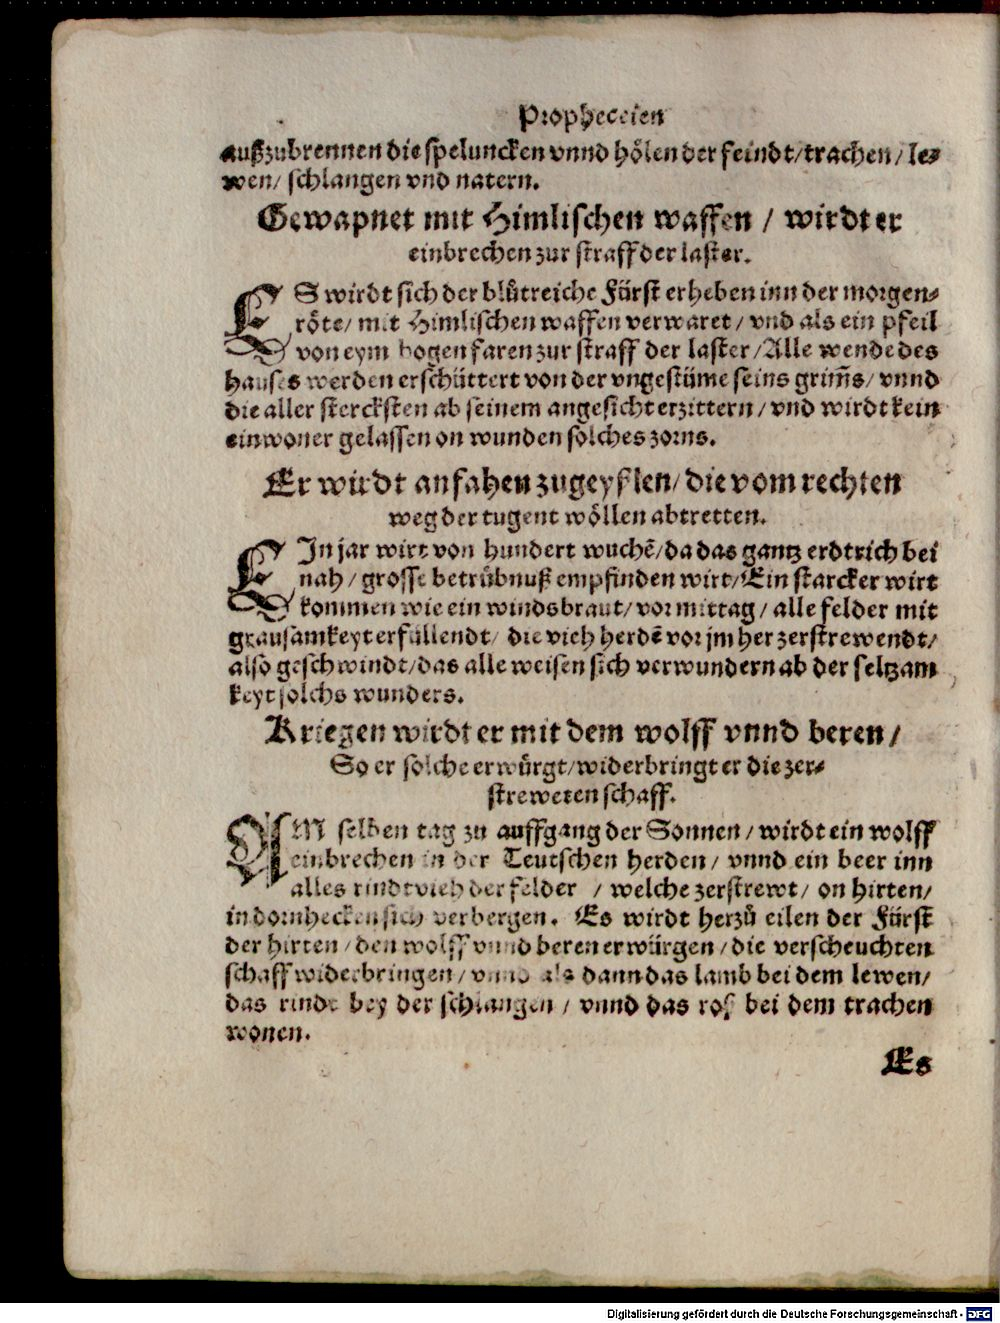 Propheceien
außzubrennen die speluncken vnnd hölen der feindt/ trachen/ le⸗
wen/ schlangen vnd natern.
Gewapnet mit Himlischen waffen / wirdt er
einbrechen zur straff der laster.
ES wirdt sich der blůtreiche Fürst erheben inn der morgen⸗
röte/ mit Himlischen waffen verwaret / vnd als ein pfeil
von eym bogen faren zur straff der laster /Alle wende des
hauses werden erschüttert von der vngestüme seins grim̄s/ vnnd
die aller stercksten ab seinem angesicht erzittern / vnd wirdt kein
einwoner gelassen on wunden solches zorns.
Er wirdt anfahen zugeyßlen/ die vom rechten
weg der tugent wöllen abtretten.
EIn jar wirt von hundert wuchē/ da das gantz erdtrich bei
nah / grosse betrübnuß empfinden wirt/ Ein starcker wirt
kommen wie ein windsbraut/ vor mittag / alle felder mit
grausamkeyt erfüllendt/ die vieh herdē vor jm her zerstrewendt/
also geschwindt/ das alle weisen sich verwundern ab der seltzam
keyt solchs wunders.
Kriegen wirdt er mit dem wolff vnnd beren /
So er solche erwürgt/ widerbringt er die zer⸗
streweten schaff.
AM selben tag zu auffgang der Sonnen / wirdt ein wolff
einbrechen in der Teutschen herden / vnnd ein beer inn
alles rindtvieh der felder / welche zerstrewt / on hirten/
in dornhecken sich verbergen. Es wirdt herzů eilen der Fürst
der hirten / den wolff vnnd beren erwürgen / die verscheuchten
schaff widerbringen / vnnd als dann das lamb bei dem lewen/
das rinde bey der schlangen / vnnd das roß bei dem trachen
wonen.
Es
Digitalisierung gefördert durch die Deutsche Forschungsgemeinschaft - DFG